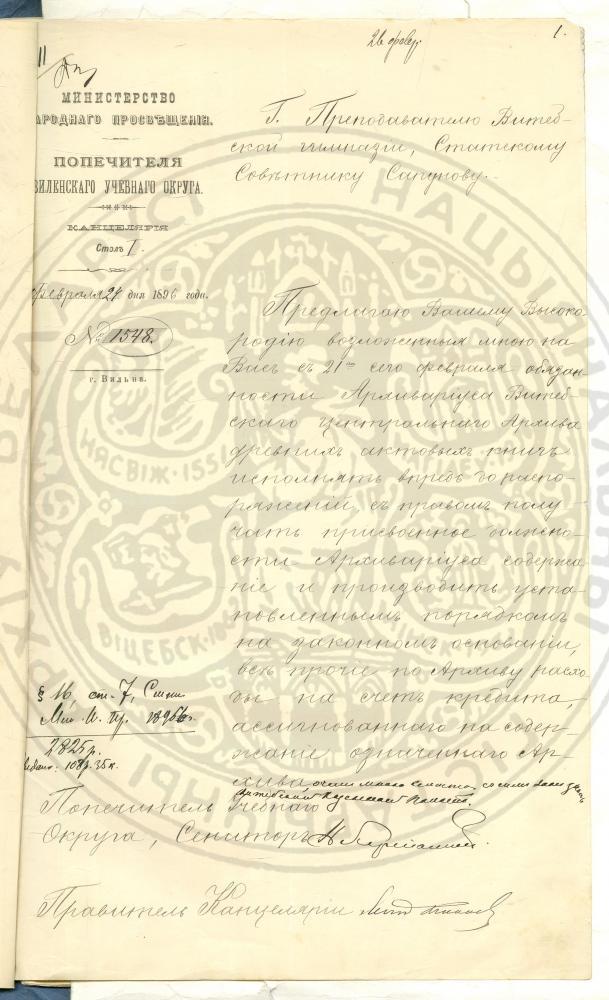 26 февр.
1.
11
МИНИСТЕРСТВО
АРОДНАГО ПРОСВѢЩЕНІЯ.
ПОПЕЧИТЕЛЯ
ВИЛЕНСКАГО УЧЕБНАГО ОКРУГА.
КАНЦЕЛЯРІЯ
Столъ I.
Февраля 24 дня 1896 года.
№ 1548.
г. Вильна.
Г. Преподавателю Витеб-
ской гимназіи, Статскому
Совѣтнику Сапунову.
Предлагаю Вашему Высоко-
родію возложенныя мною на
Васъ съ 21го сего февраля обязан-
ности Архиваріуса Витеб-
скаго Центральнаго Архива
древнихъ актовыхъ книгъ
исполнять впредь до распо-
ряженій, съ правомъ полу-
чать присвоенное должно-
сти Архиваріуса содержа-
ніе и производить уста-
новленнымъ порядкомъ
на законномъ основаніи,
всѣ прочіе по Архиву расхо-
ды на счетъ кредита,
ассигнованнаго на содер-
жаніе означеннаго Ар-
хива,
§ 16 ст. 7,
Мин. Н. Пр. 1896 г.
2825 р.
108 р. 35 к.
Попечитель Учебнаго
Округа, Сенаторъ
Правитель Канцеляріи
НЯСВІЖ·155
ВІЦЕБСК·1